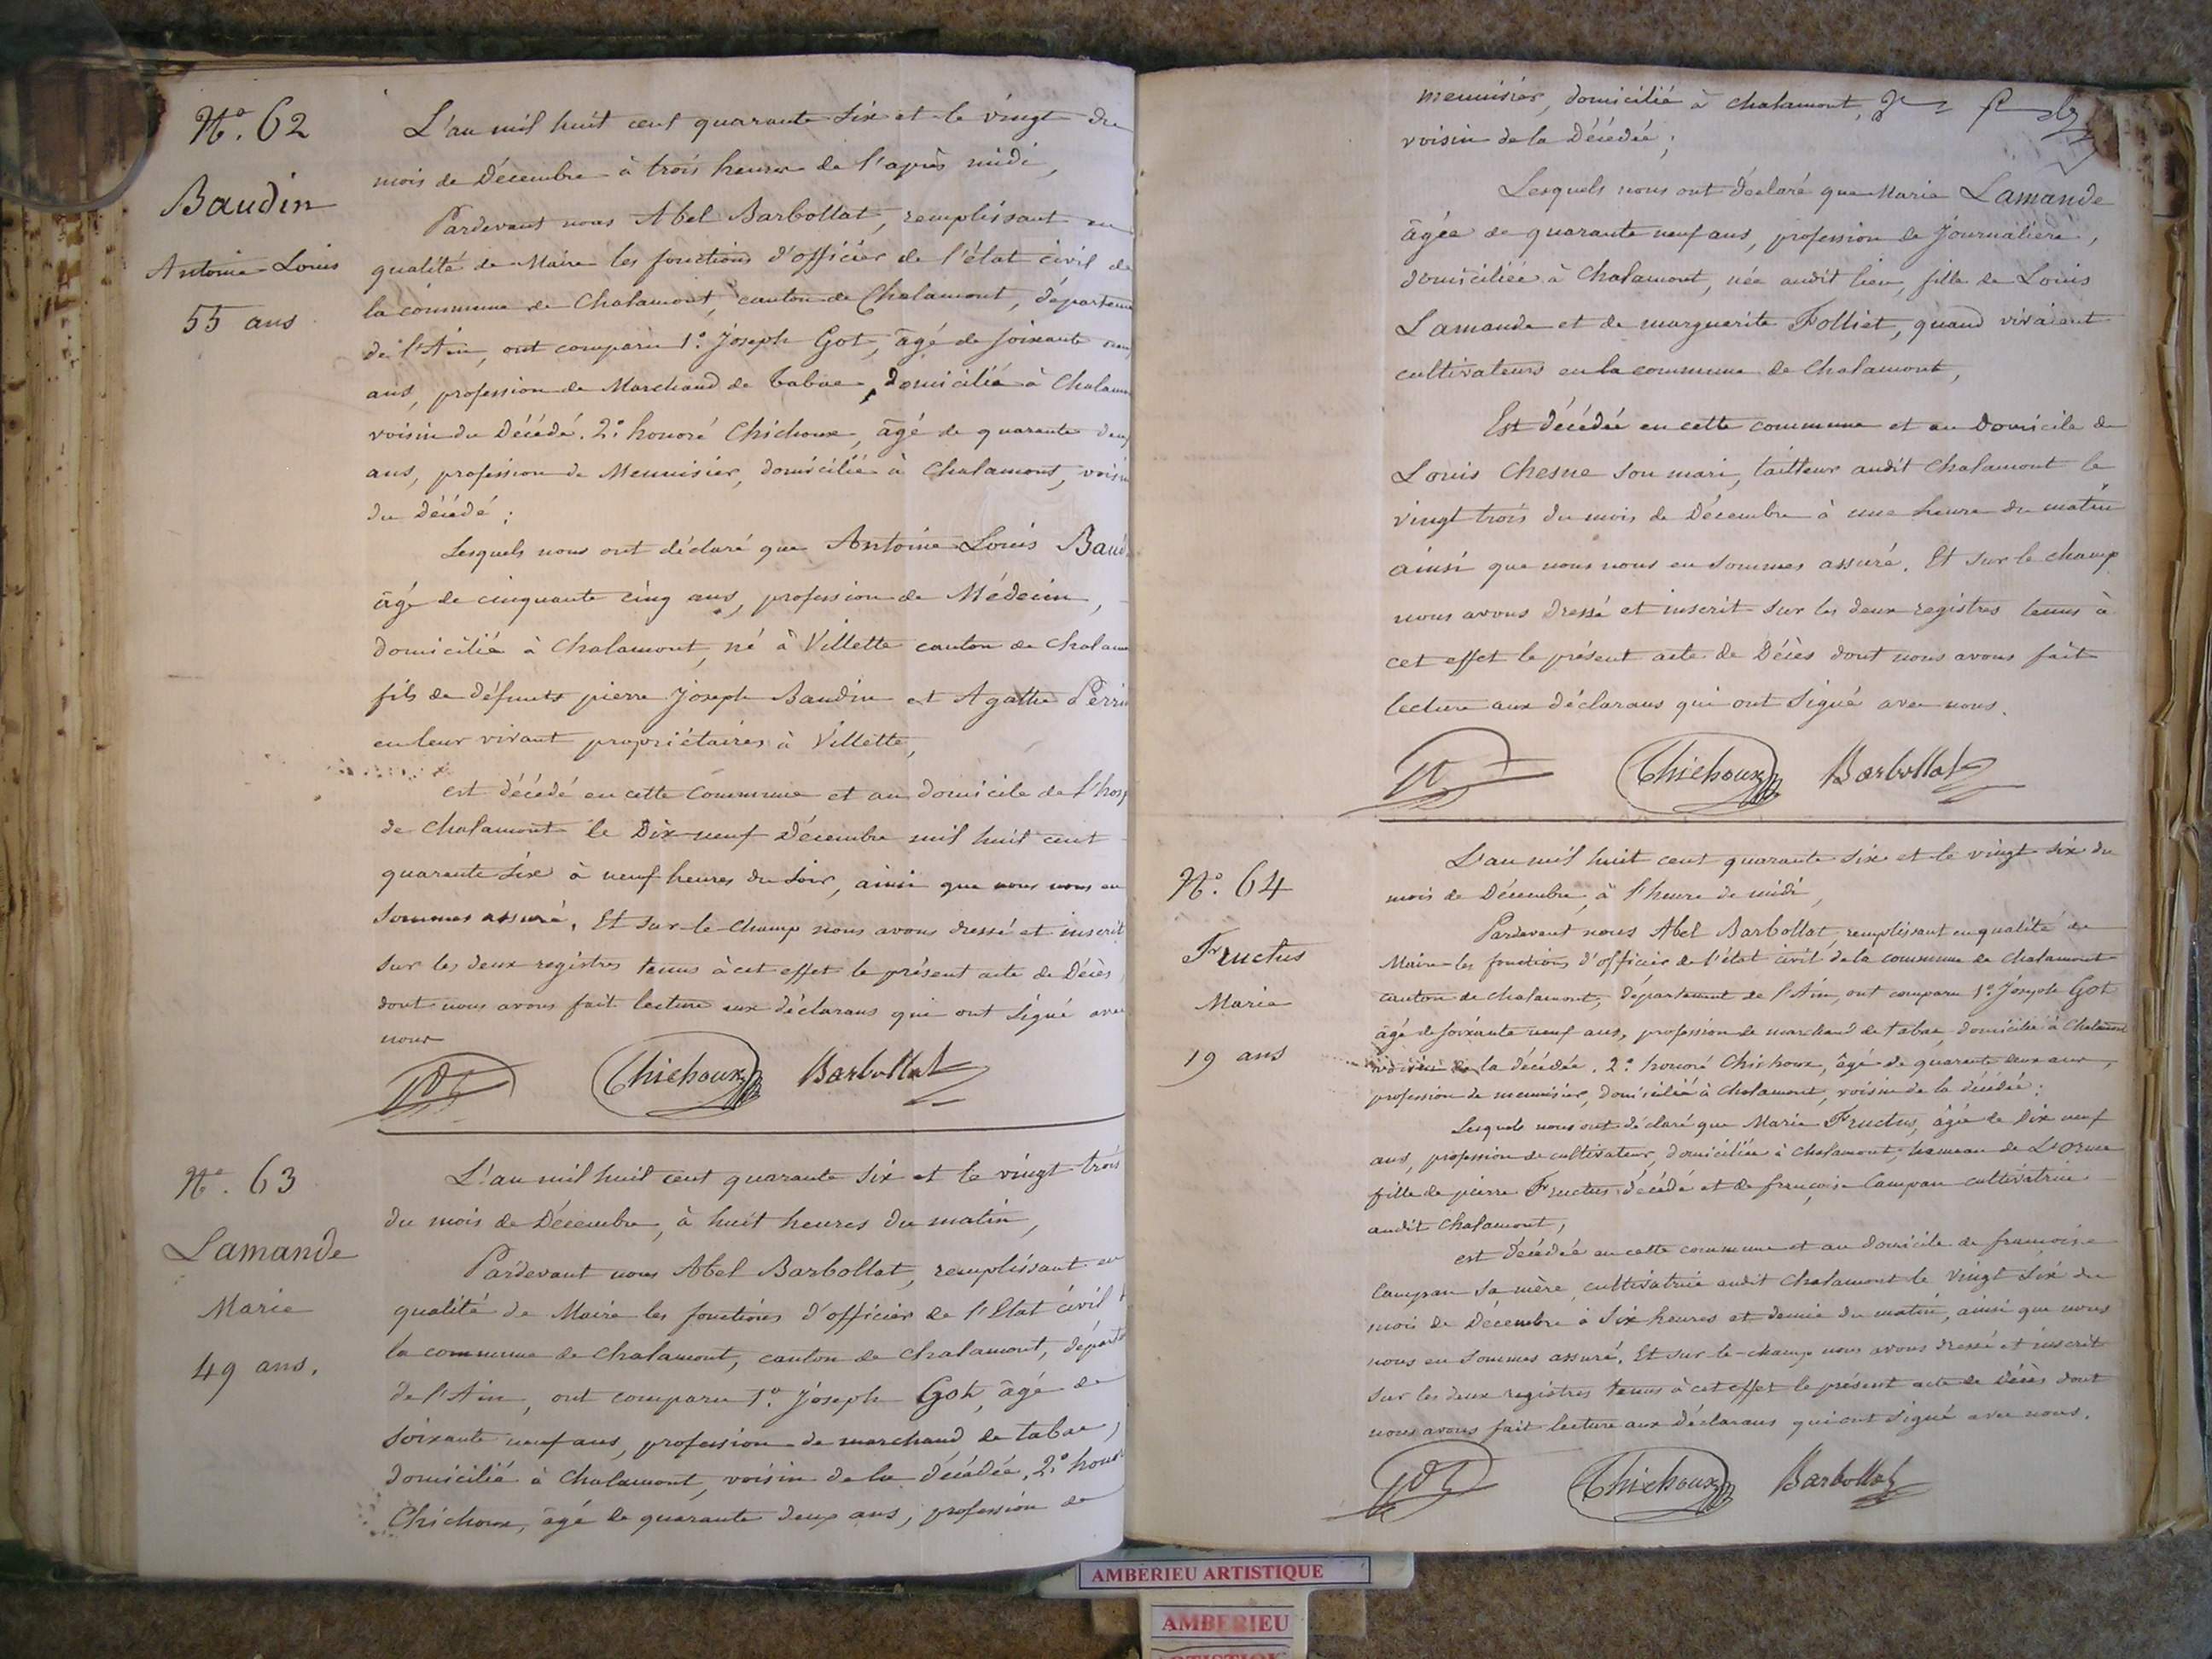 N.° 62
Baudin
Antoine Louis
55 ans
L'an mil huit cent quarante six et le vingt du
mois de Décembre à trois heures de l'après midi,
Pardevant nous Abel Barbollat, remplissant en
qualité de Maire les fonctions d'officier de l'état civil de
la commune de Chalamont, canton de Chalamont, départeme
de l'Ain, ont comparu 1.° Joseph Got, âgé de soixante neuf
ans, profession de Marchand de tabac, domicilié à Chalam
voisin du Décédé. 2.° honoré Chichoux, âgé de quarante deux
ans, profession de Menuisier, domicilié à Chalamont, voisin
du Décédé ;
Lesquels nous ont déclaré que Antoine Louis Baud
âgé de cinquante cinq ans, profession de Médecin,
domicilié à Chalamont, né à Villette canton de Chalam
fils de défunts pierre Joseph Baudin et Agathe Perri
en leur vivant propriétaires à Villette,
est décédé en cette commune et au domicile de l'hosp
de Chalamont le Dix-neuf Décembre mil huit cent
quarante six à neuf heures du soir, ainsi que nous nous en
sommes assuré. Et sur-le-champ nous avons dressé et inscrit
sur les deux registres tenus à cet effet le présent acte de Décès
dont nous avons fait lecture aux déclarans qui ont signé avec
nous
Got Chichoux Barbollat
N.° 63
Lamande
Marie
49 ans.
L'an mil huit cent quarante six et le vingt trois
du mois de Décembre, à huit heures du matin,
Pardevant nous Abel Barbollat, remplissant en
qualité de Maire les fonctions d'officier de l'Etat civil
la commune de Chalamont, canton de Chalamont, départ
de l'Ain, ont comparu 1.° Joseph Got, âgé de
soixante neuf ans, profession de marchand de tabac,
domicilié à Chalamont, voisin de la décédée, 2.° honor
Chichoux, âgé de quarante deux ans, profession de
menuisier, domicilié à Chalamont,
voisin de la Décédée ;
Lesquels nous ont déclaré que Marie Lamande
âgée de quarante neuf ans, profession de Journalière,
domiciliée à Chalamont, née audit lieu, fille de Louis
Lamande et de marguerite Folliet, quand vivaient
cultivateurs en la commune de Chalamont,
Est décédée en cette commune et au Domicile de
Louis Chesne son mari, tailleur audit Chalamont le
vingt trois du mois de Décembre à une heure du matin
ainsi que nous nous en sommes assuré. Et sur le champ
nous avons dressé et inscrit sur les deux registres tenus à
cet effet le présent acte de Décès dont nous avons fait
lecture aux déclarans qui ont signé avec nous.
Got Chichoux Barbollat
N.° 64
Fructus
Marie
19 ans
L'an mil huit cent quarante six et le vingt six du
mois de Décembre, à l'heure de midi,
Pardevant nous Abel Barbollat, remplissant en qualité de
Maire les fonctions d'officier de l'état civil de la commune de Chalamont
canton de Chalamont, département de l'Ain, ont comparu 1.° Joseph Got
âgé de soixante neuf ans, profession de marchand de tabac, domicilié à Chalamont
voisin de la décédée. 2.° honoré Chichoux, âgé de quarante deux ans,
profession de menuisier, domicilié à Chalamont, voisin de la décédée ;
Lesquels nous ont déclaré que Marie Fructus, âgée de dix neuf
ans, profession de cultivateur, domiciliée à Chalamont, hameau de
fille de pierre Fructus décédé et de françoise Campan cultivatrice
audit Chalamont,
est décédée en cette commune et au domicile de françoise
Campan sa mère, cultivatrice audit Chalamont le vingt six du
mois de Décembre à six heures et demie du matin, ainsi que nous
nous en sommes assuré. Et sur-le-champ nous avons dressé et inscrit
sur les deux registres tenus à cet effet le présent acte de Décès dont
nous avons fait lecture aux déclarans qui ont signé avec nous.
Got Chichoux Barbollat
AMBERIEU ARTISTIQUE
AMBERIEU
ARTISTIQUE